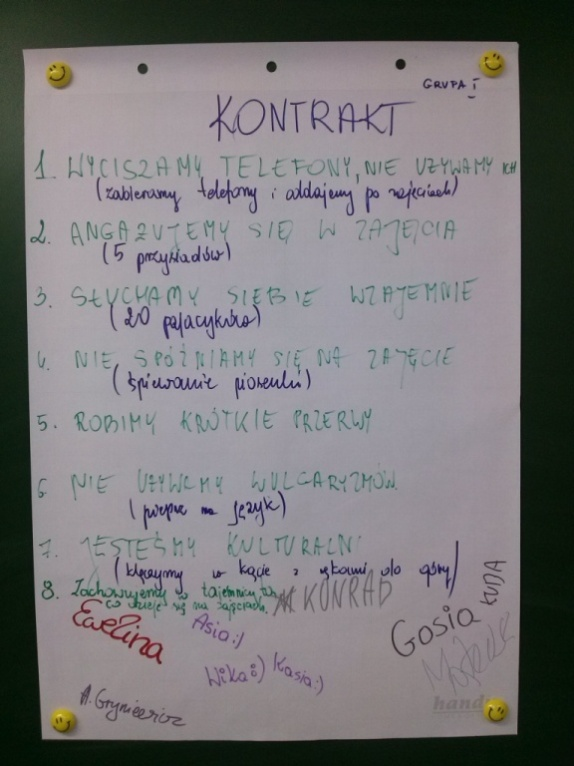 GRUPA I
KONTRAKT
1. WYCISZAMY TELEFONY, NIE UŻYWAMY ICH
(zabieramy telefony i oddajemy po zajęciach)
2. ANGAŻUJEMY SIĘ W ZAJĘCIA
(5 przysiadów)
3. SŁUCHAMY SIEBIE WZAJEMNIE
(20 pajacyków)
4. NIE SPÓŹNIAMY SIĘ NA ZAJĘCIE
(śpiewanie piosenki)
5. ROBIMY KRÓTKIE PRZERWY
6. NIE UŻYWAMY WULGARYZMÓW
(pieprz na język)
7. JESTEŚMY KULTURALNI
(klęczymy w kącie z rękami do góry)
8. Zachowujemy w tajemnicy to,
co dzieje się na zajęciach.
KONRAD
Ewelina
Asia:)
Gosia
KUDA
Wika:)
Kasia:)
A. Gryniewicz
hand